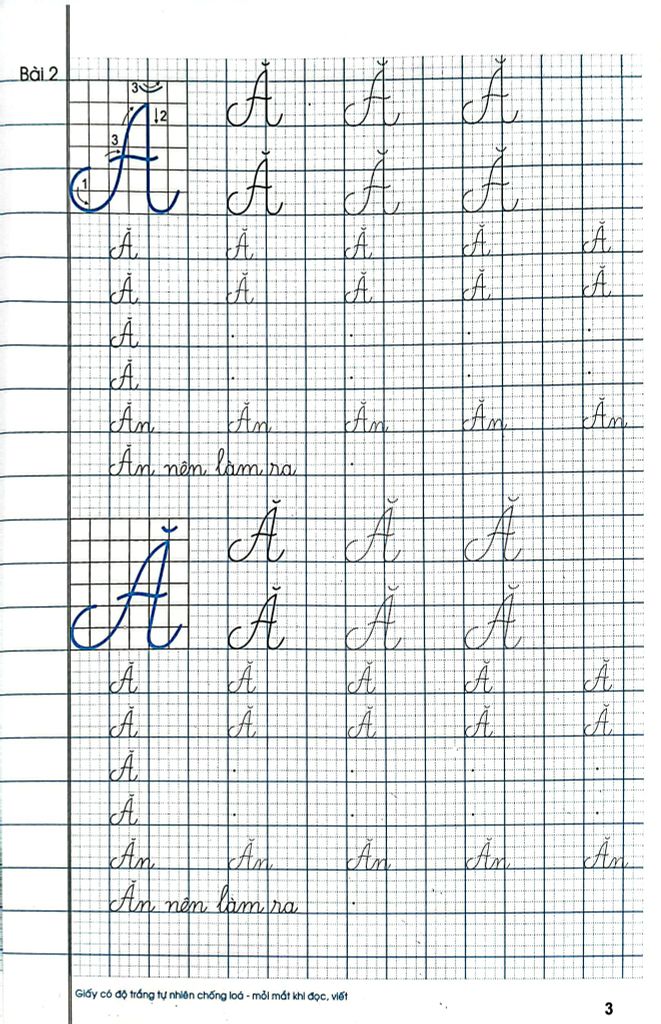 Bài 2
3
2
3
1
Ă Ă Ă Ă
Ă Ă Ă
Ă Ă Ă Ă Ă
Ă Ă Ă Ă Ă
Ă
Ă
Ăn Ăn Ăn Ăn Ăn
Ăn nên làm ra
Ă Ă Ă Ă
Ă Ă Ă
Ă Ă Ă Ă Ă
Ă Ă Ă Ă Ă
Ă
Ă
Ăn Ăn Ăn Ăn Ăn
Ăn nên làm ra
Giấy có độ trắng tự nhiên chống loá - mỏi mắt khi đọc, viết
3